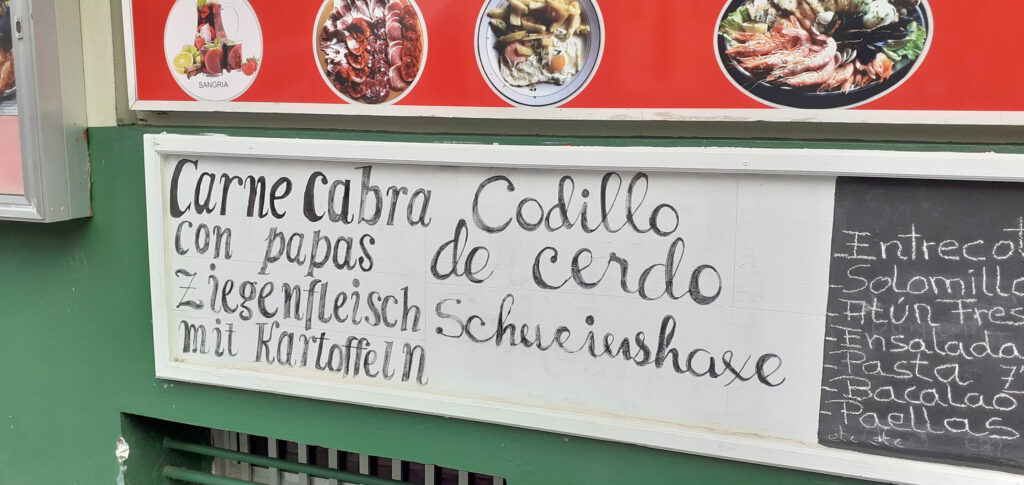 SANGRIA
Carne Cabra
con papas
Ziegenfleisch
mit Kartoffeln
Codillo
de cerdo
Schweinshaxe
Entreco
-Solomillo
-Atún Fres
-Ensalada
-Pasta
-Bacalao
-Paellas